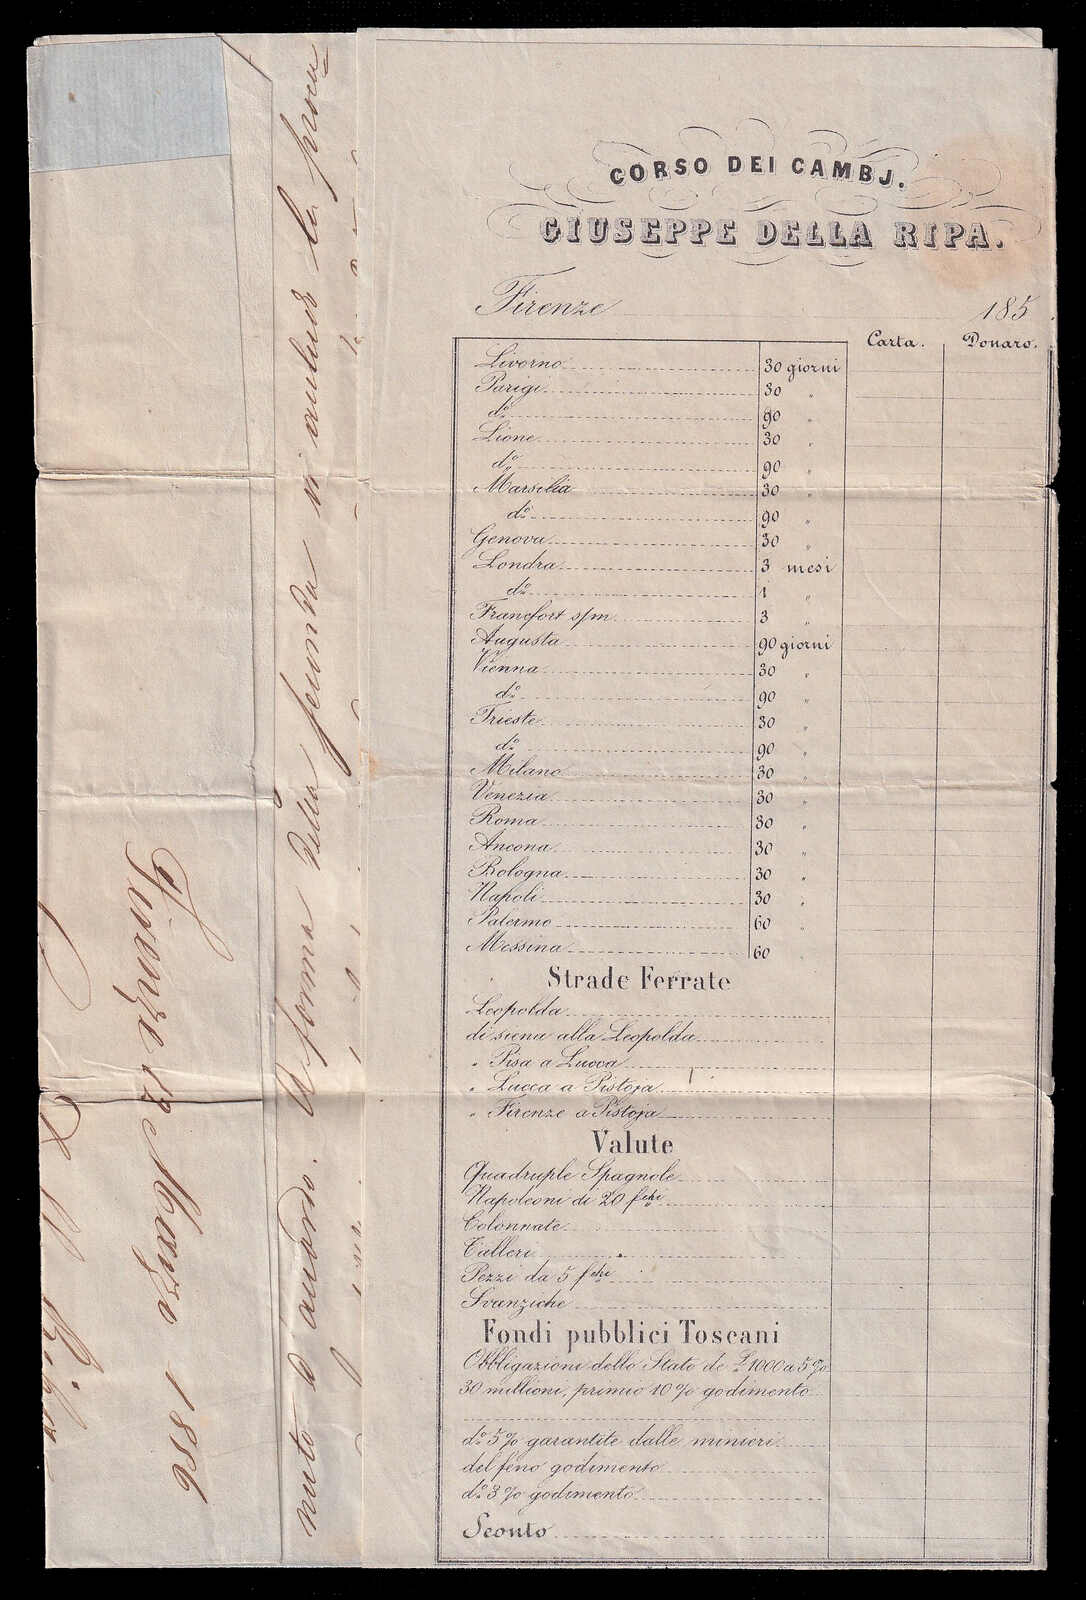 CORSO DEI CAMBJ.
GIUSEPPE DELLA RIPA.
Firenze 185
Carta. Denaro.
Livorno 30 giorni
Parigi 30 "
do. 90 "
Lione 30 "
do. 90 "
Marsilia 30 "
do. 90 "
Genova 30 "
Londra 3 mesi
do. 1 "
Francfort s/m 3 "
Augusta 90 giorni
Vienna 30 "
do. 90 "
Trieste 30 "
do. 90 "
Milano 30 "
Venezia 30 "
Roma 30 "
Ancona 30 "
Bologna 30 "
Napoli 30 "
Palermo 60 "
Messina 60 "
Strade Ferrate
Leopolda
di siena alla Leopolda
" Pisa a Lucca
" Lucca a Pistoja
" Firenze a Pistoja
Valute
Quadruple Spagnole
Napoleoni di 20 fchi
Colonnate
Talleri
Pezzi da 5 fchi
Svanziche
Fondi pubblici Toscani
Obbligazioni dello Stato de £1000 a 5%
30 millioni, primio 10% godimento
do. 5% garantite dalle minieri
del feno godimento
do. 3% godimento
Sconto
Firenze 12 Marzo 1856
nuto d'accordo. A forma della seconda vi valudo la